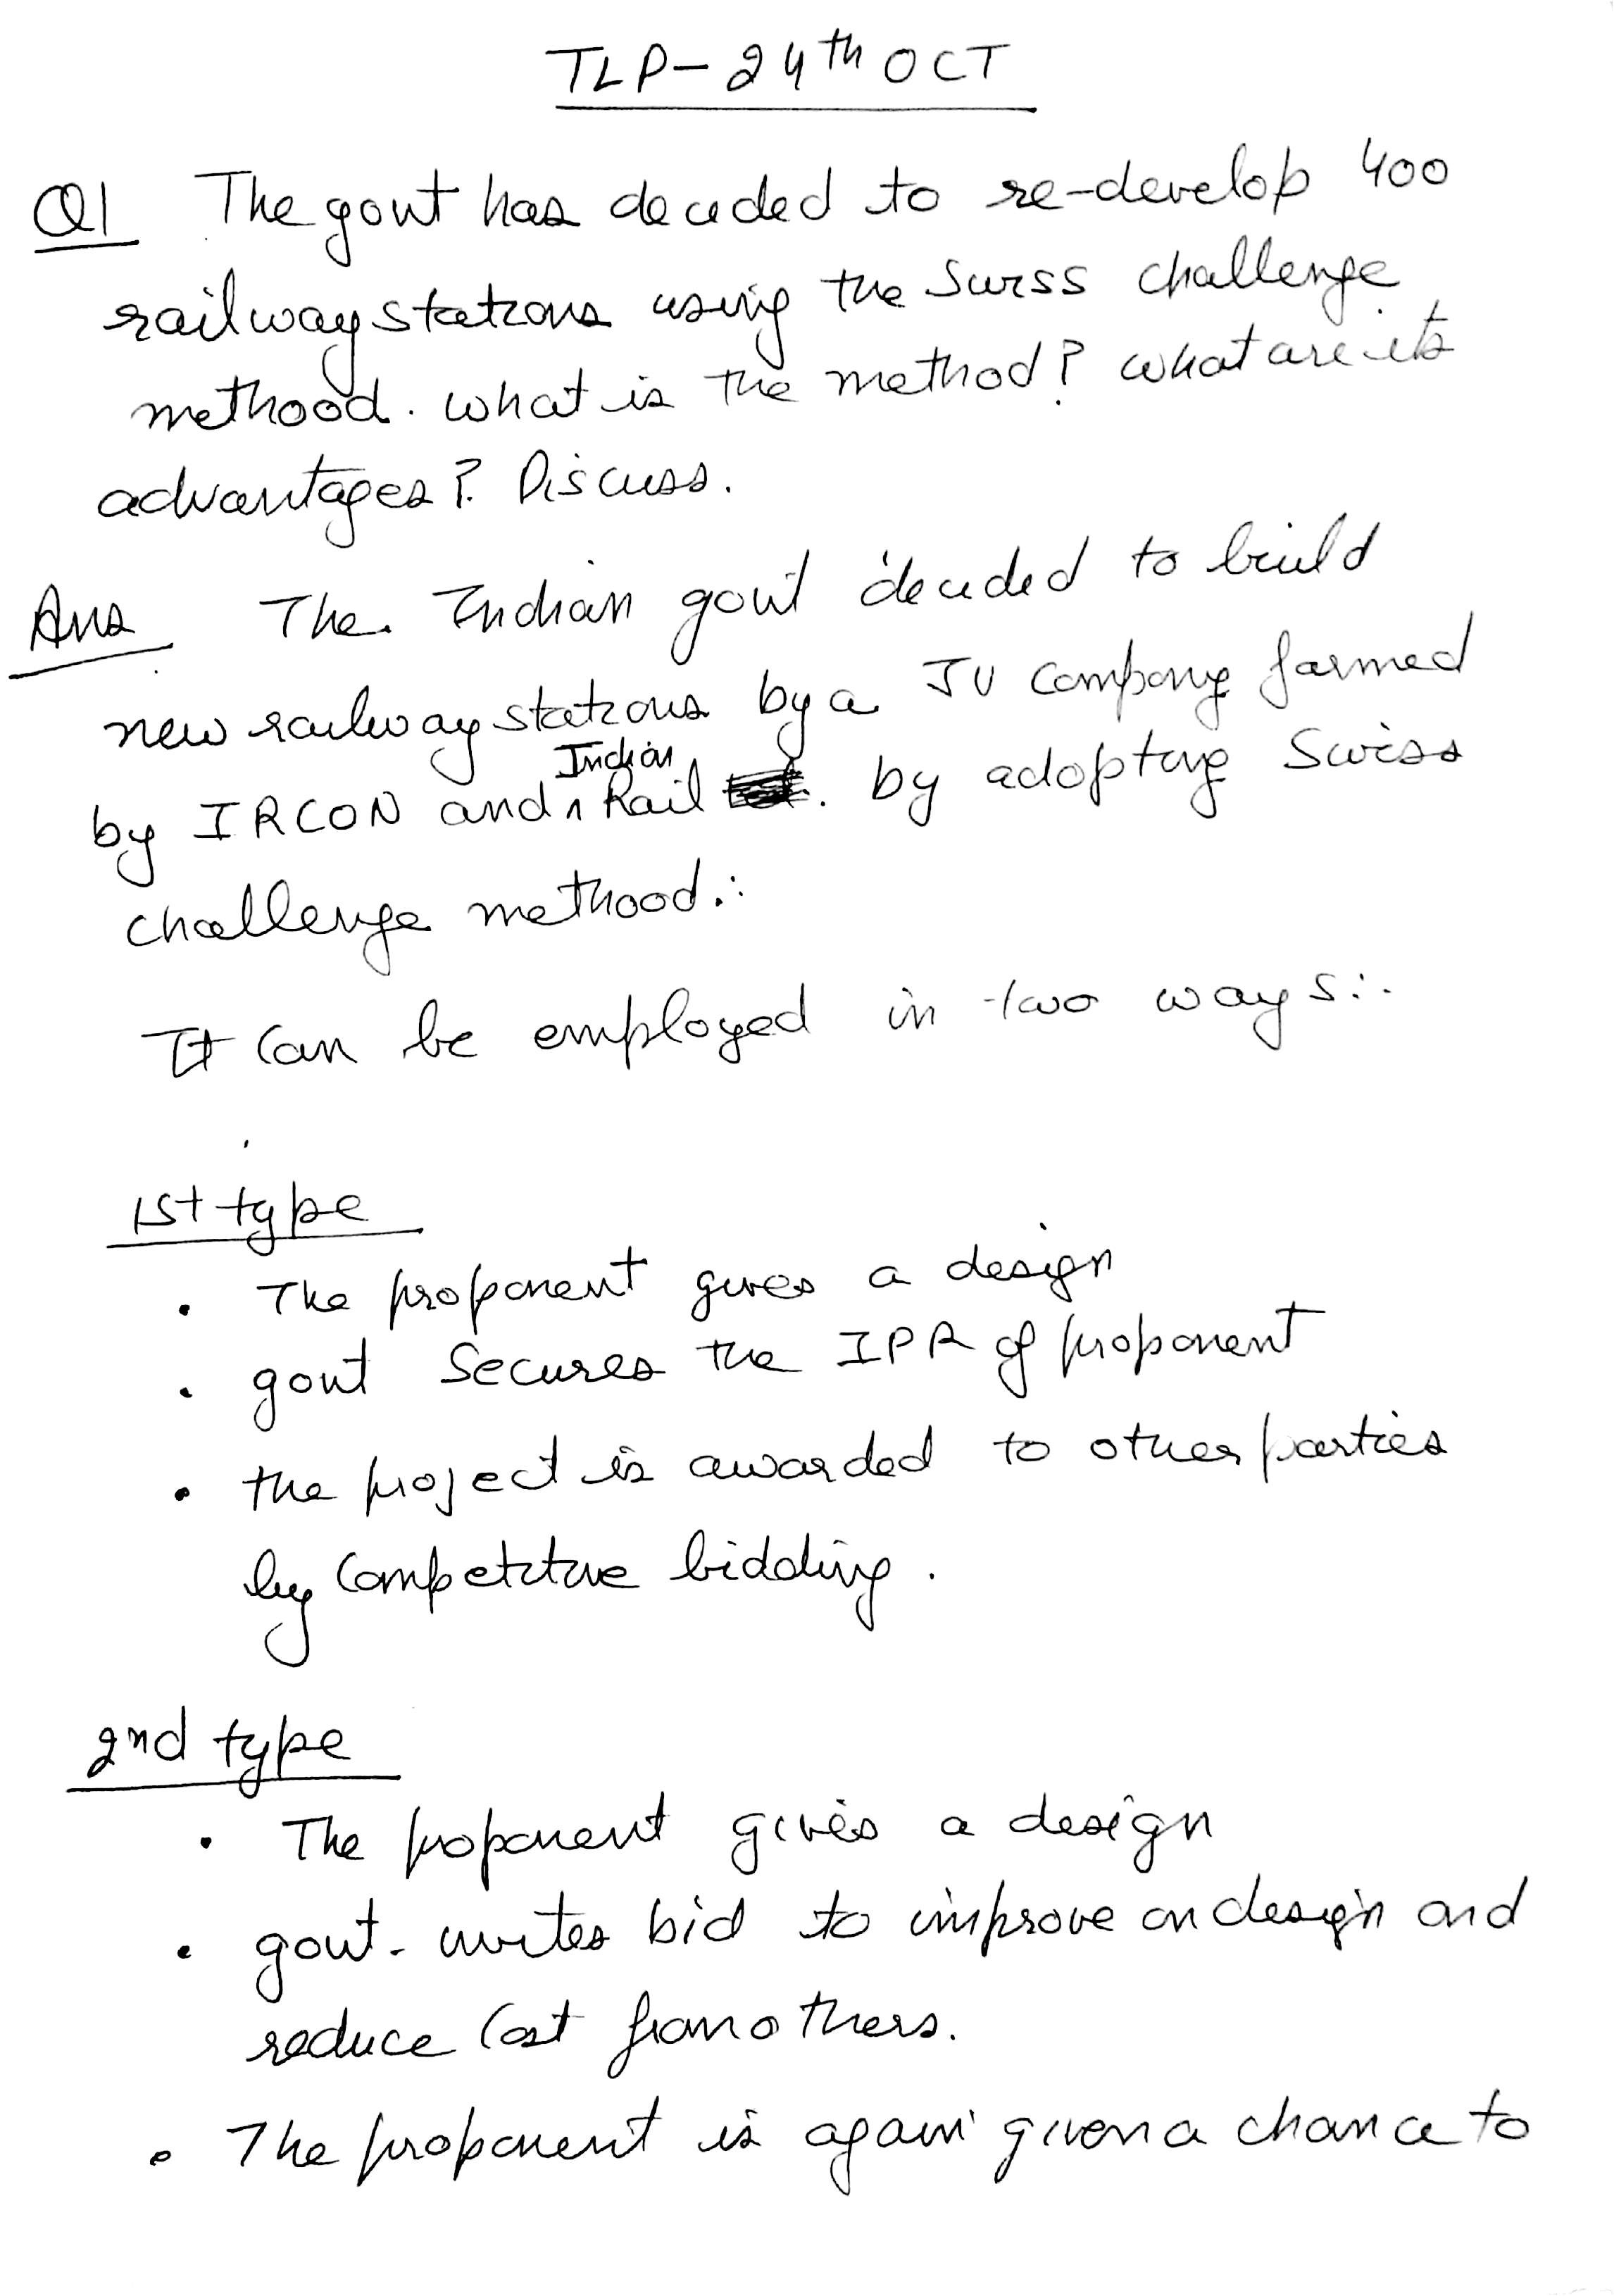 TLP - 24th OCT
Q1 The govt has decided to re-develop 400
railway stations using the Swiss challenge
methood. What is the method? What are its
advantages? Discuss.
Ans The Indian govt decided to build
new railway stations by a JV company formed
by IRCON and Indian Rail by adopting Swiss
challenge methood.:
It can be employed in two ways:-
1st type
• The proponent gives a design
• govt secures the IPR of proponent
• the project is awarded to other parties
by competitive bidding.
2nd type
• The proponent gives a design
• govt. invites bid to improve on design and
reduce cost from others.
• The proponent is again given a chance to